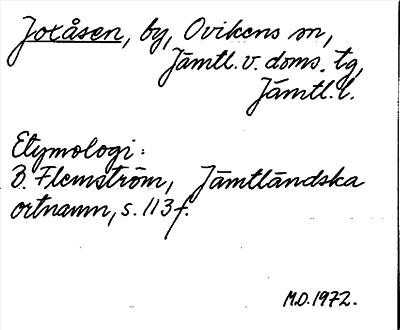 Joxåsen, by, Ovikens sn,
Jämtl. v. doms. tg,
Jämtl. l.
Etymologi:
B. Flemström, Jämtländska
ortnamn, s. 113 f.
M.O. 1972.